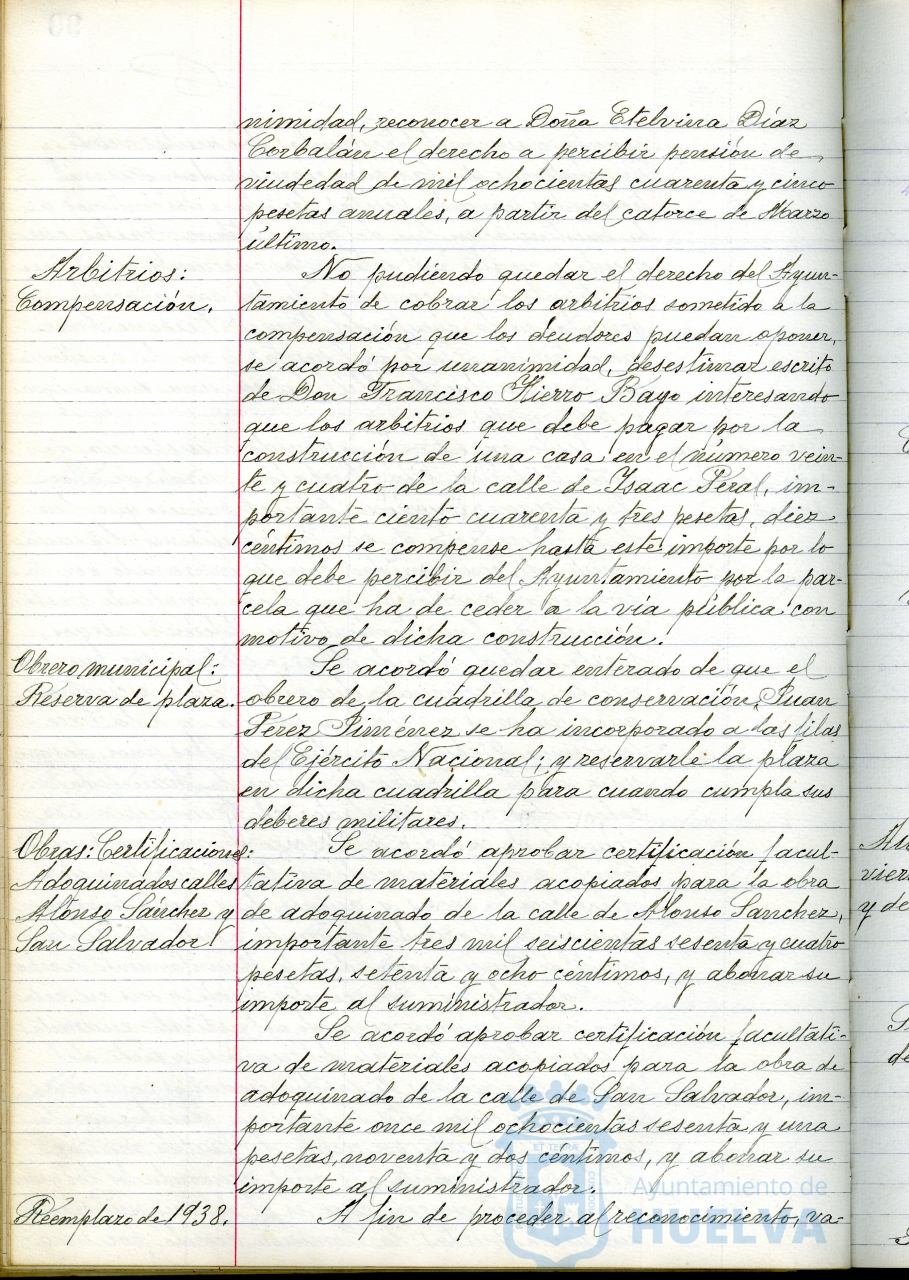 nimidad, reconocer a Doña Etelvina Díaz
Corbalán el derecho a percibir pensión de
viudedad de mil ochocientas cuarenta y cinco
pesetas anuales, a partir del catorce de Marzo
último.
Arbitrios:
Compensación.
No pudiendo quedar el derecho del Ayun-
tamiento de cobrar los arbitrios sometido a la
compensación que los deudores puedan oponer,
se acordó por unanimidad, desestimar escrito
de Don Francisco Hierro Bayo interesando
que los arbitrios que debe pagar por la
construcción de una casa en el número vein-
te y cuatro de la calle de Isaac Peral, im-
portante ciento cuarenta y tres pesetas, diez
céntimos se compense hasta este importe por lo
que debe percibir del Ayuntamiento por la par-
cela que ha de ceder a la vía pública con
motivo de dicha construcción.
Obrero municipal:
Reserva de plaza.
Se acordó quedar enterado de que el
obrero de la cuadrilla de conservación, Juan
Pérez Jiménez se ha incorporado a las filas
del Ejército Nacional; y reservarle la plaza
en dicha cuadrilla para cuando cumpla sus
deberes militares.
Obras: Certificaciones:
Adoquinados calles
Alonso Sánchez y
San Salvador
Se acordó aprobar certificación facul-
tativa de materiales acopiados para la obra
de adoquinado de la calle de Alonso Sanchez,
importante tres mil seiscientas sesenta y cuatro
pesetas, setenta y ocho céntimos, y abonar su
importe al suministrador.
Se acordó aprobar certificación facultati-
va de materiales acopiados para la obra de
adoquinado de la calle de San Salvador, im-
portante once mil ochocientas sesenta y una
pesetas, noventa y dos céntimos, y abonar su
importe al suministrador.
Reemplazo de 1938.
A fin de proceder al reconocimiento, va-
Ayuntamiento de
HUELVA